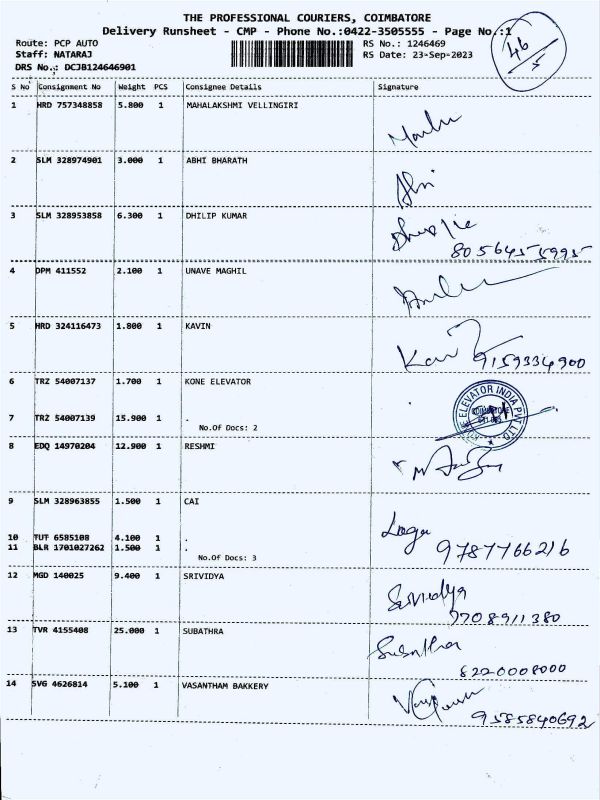 THE PROFESSIONAL COURIERS, COIMBATORE
Delivery Runsheet - CMP - Phone No.:0422-3505555 - Page No.:1
Route: PCP AUTO RS No.: 1246469
Staff: NATARAJ RS Date: 23-Sep-2023
DRS No.: DCJB124646901
46/5
S No Consignment No Weight PCS Consignee Details Signature
1 HRD 757348858 5.800 1 MAHALAKSHMI VELLINGIRI
2 SLM 328974901 3.000 1 ABHI BHARATH
3 SLM 328953858 6.300 1 DHILIP KUMAR
8056455995
4 DPM 411552 2.100 1 UNAVE MAGHIL
5 HRD 324116473 1.800 1 KAVIN
9159334900
6 TRZ 54007137 1.700 1 KONE ELEVATOR
KONE ELEVATOR INDIA PVT LTD
7 TRZ 54007139 15.900 1 .
No.Of Docs: 2
8 EDQ 14970204 12.900 1 RESHMI
9 SLM 328963855 1.500 1 CAI
10 TUT 6585108 4.100 1 .
9787766216
11 BLR 1701027262 1.500 1 .
No.Of Docs: 3
12 MGD 140025 9.400 1 SRIVIDYA
Srividya
7708911380
13 TVR 4155408 25.000 1 SUBATHRA
Subathra
8220008000
14 SVG 4626814 5.100 1 VASANTHAM BAKKERY
9585840692